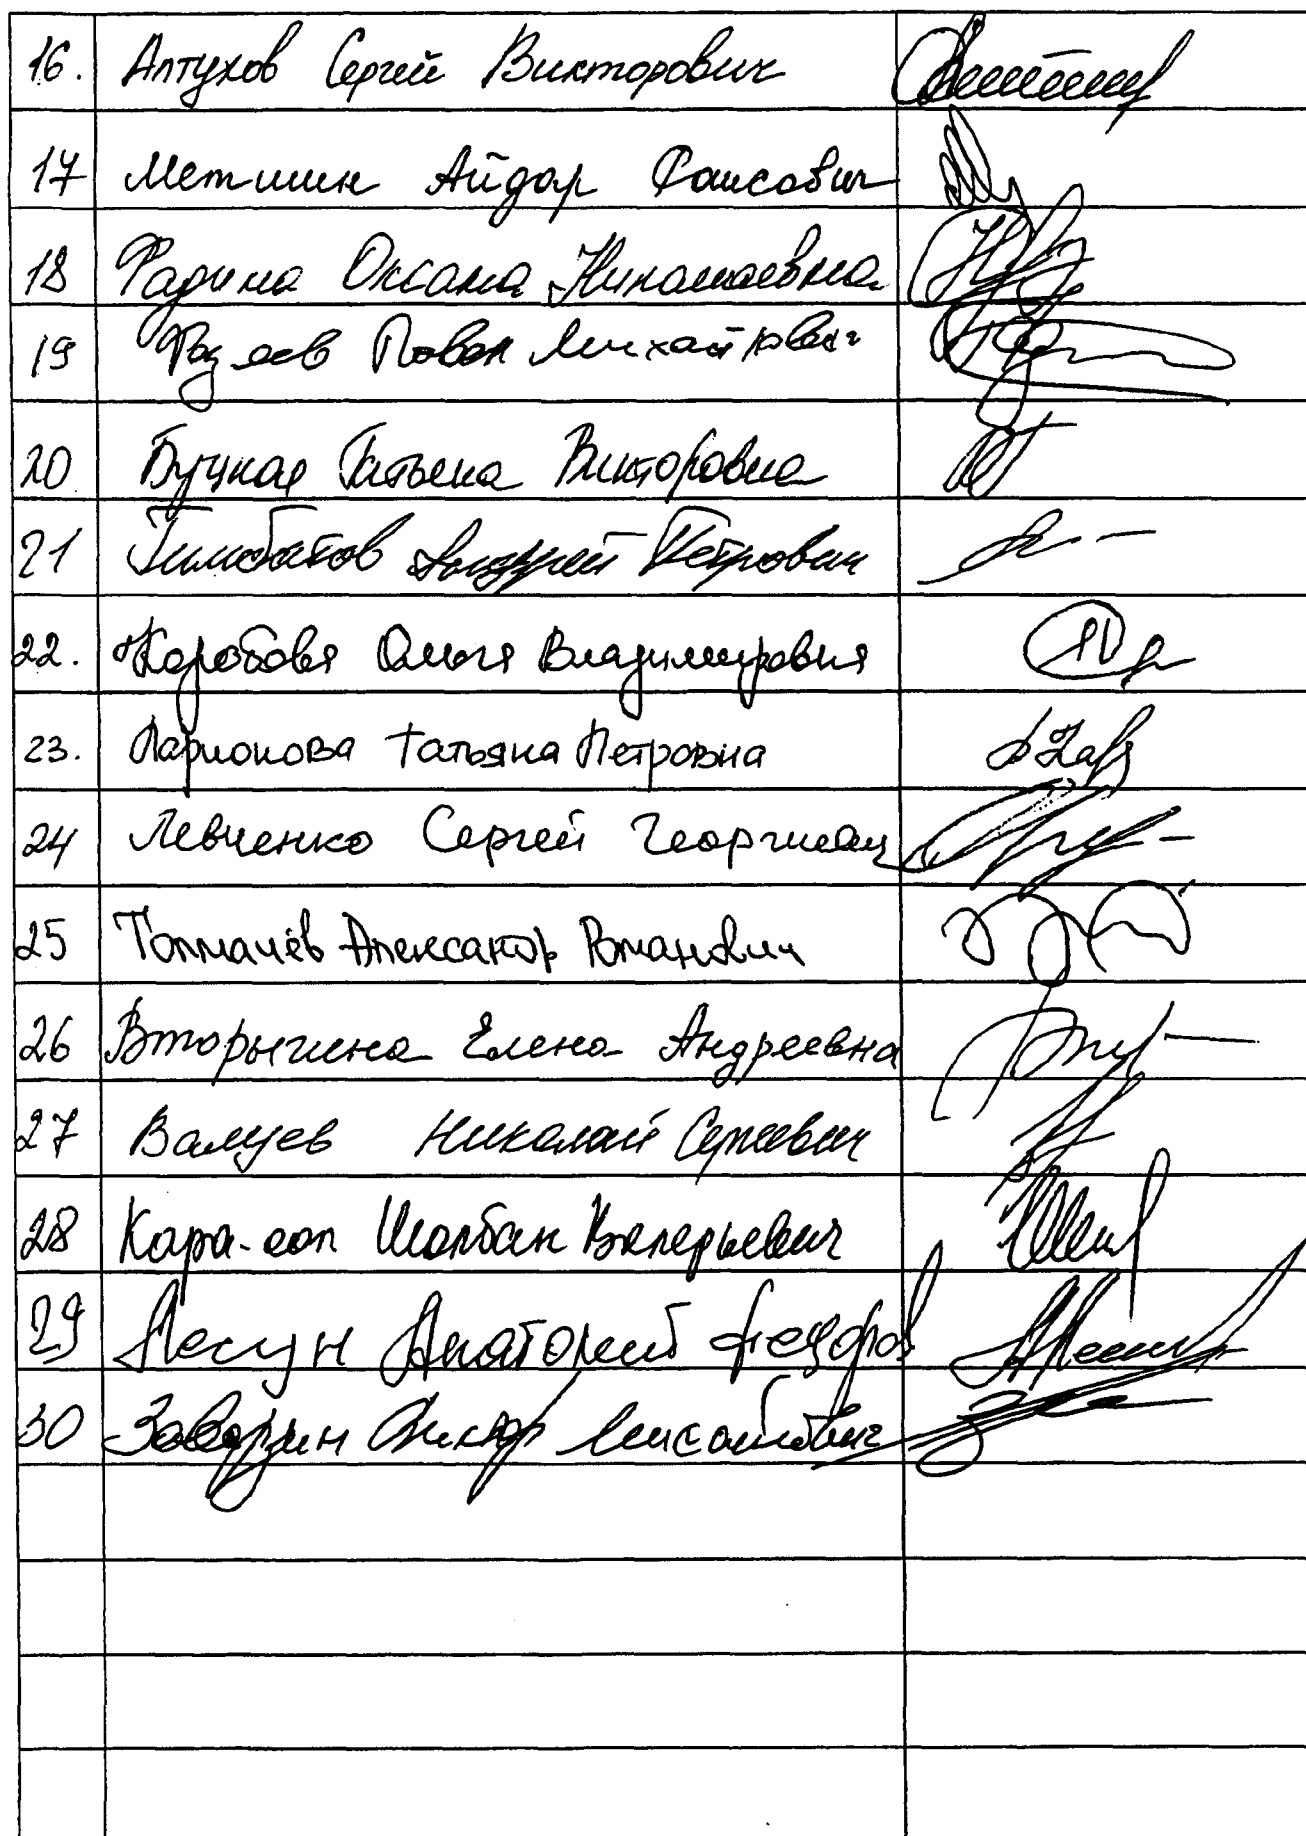 16. Алтухов Сергей Викторович
17 Метшин Айдар Раисович
18 Фадина Оксана Николаевна
19 Павел Михайлович
20 Буцкая Татьяна Викторовна
21 Гимбатов Андрей Петрович
22. Коробова Ольга Владимировна
23. Ларионова Татьяна Петровна
24 Левченко Сергей Георгиевич
25 Толмачёв Александр Романович
26 Вторыгина Елена Андреевна
27 Валуев Николай Сергеевич
28 Кара-оол Шолбан Валерьевич
29 Лесун Анатолий Федоров
30 Заварзин Виктор Михайлович